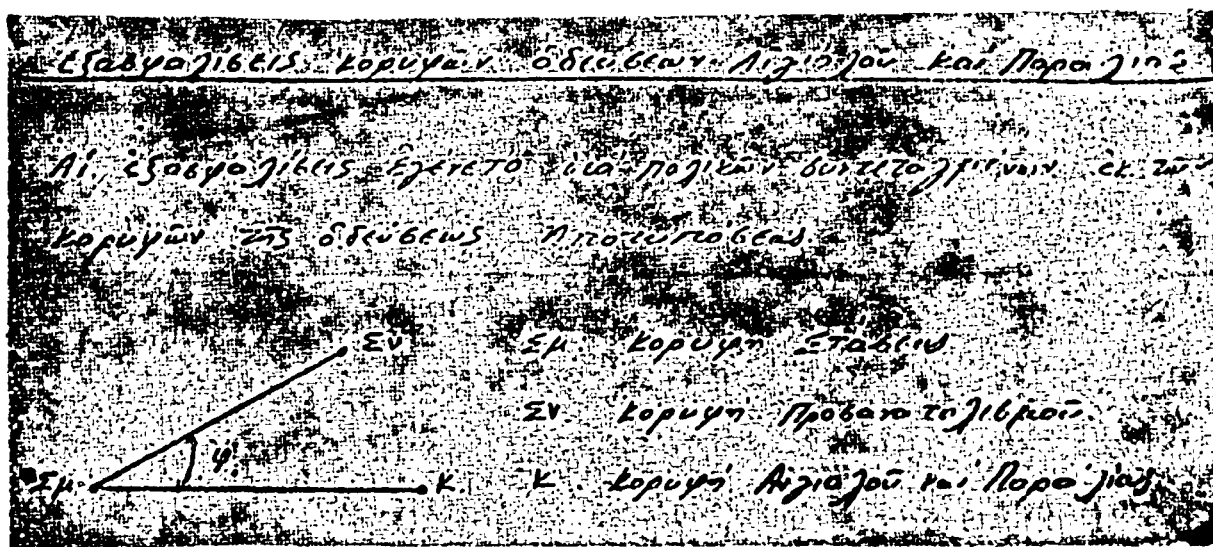 Ἐξασφαλίσεις κορυφῶν ὁδεύσεων Αἰγιαλοῦ καί Παραλίας
Αἱ ἐξασφαλίσεις ἐγένετο διά πολικῶν συντεταγμένων ἐκ τῶν
κορυφῶν τῆς ὁδεύσεως Ἀποτυπώσεως.
Σν Σμ κορυφή Στάσεως
Σν. κορυφή Προσανατολισμοῦ.
Σμ φ Κ Κ κορυφή Αἰγιαλοῦ καί Παραλίας